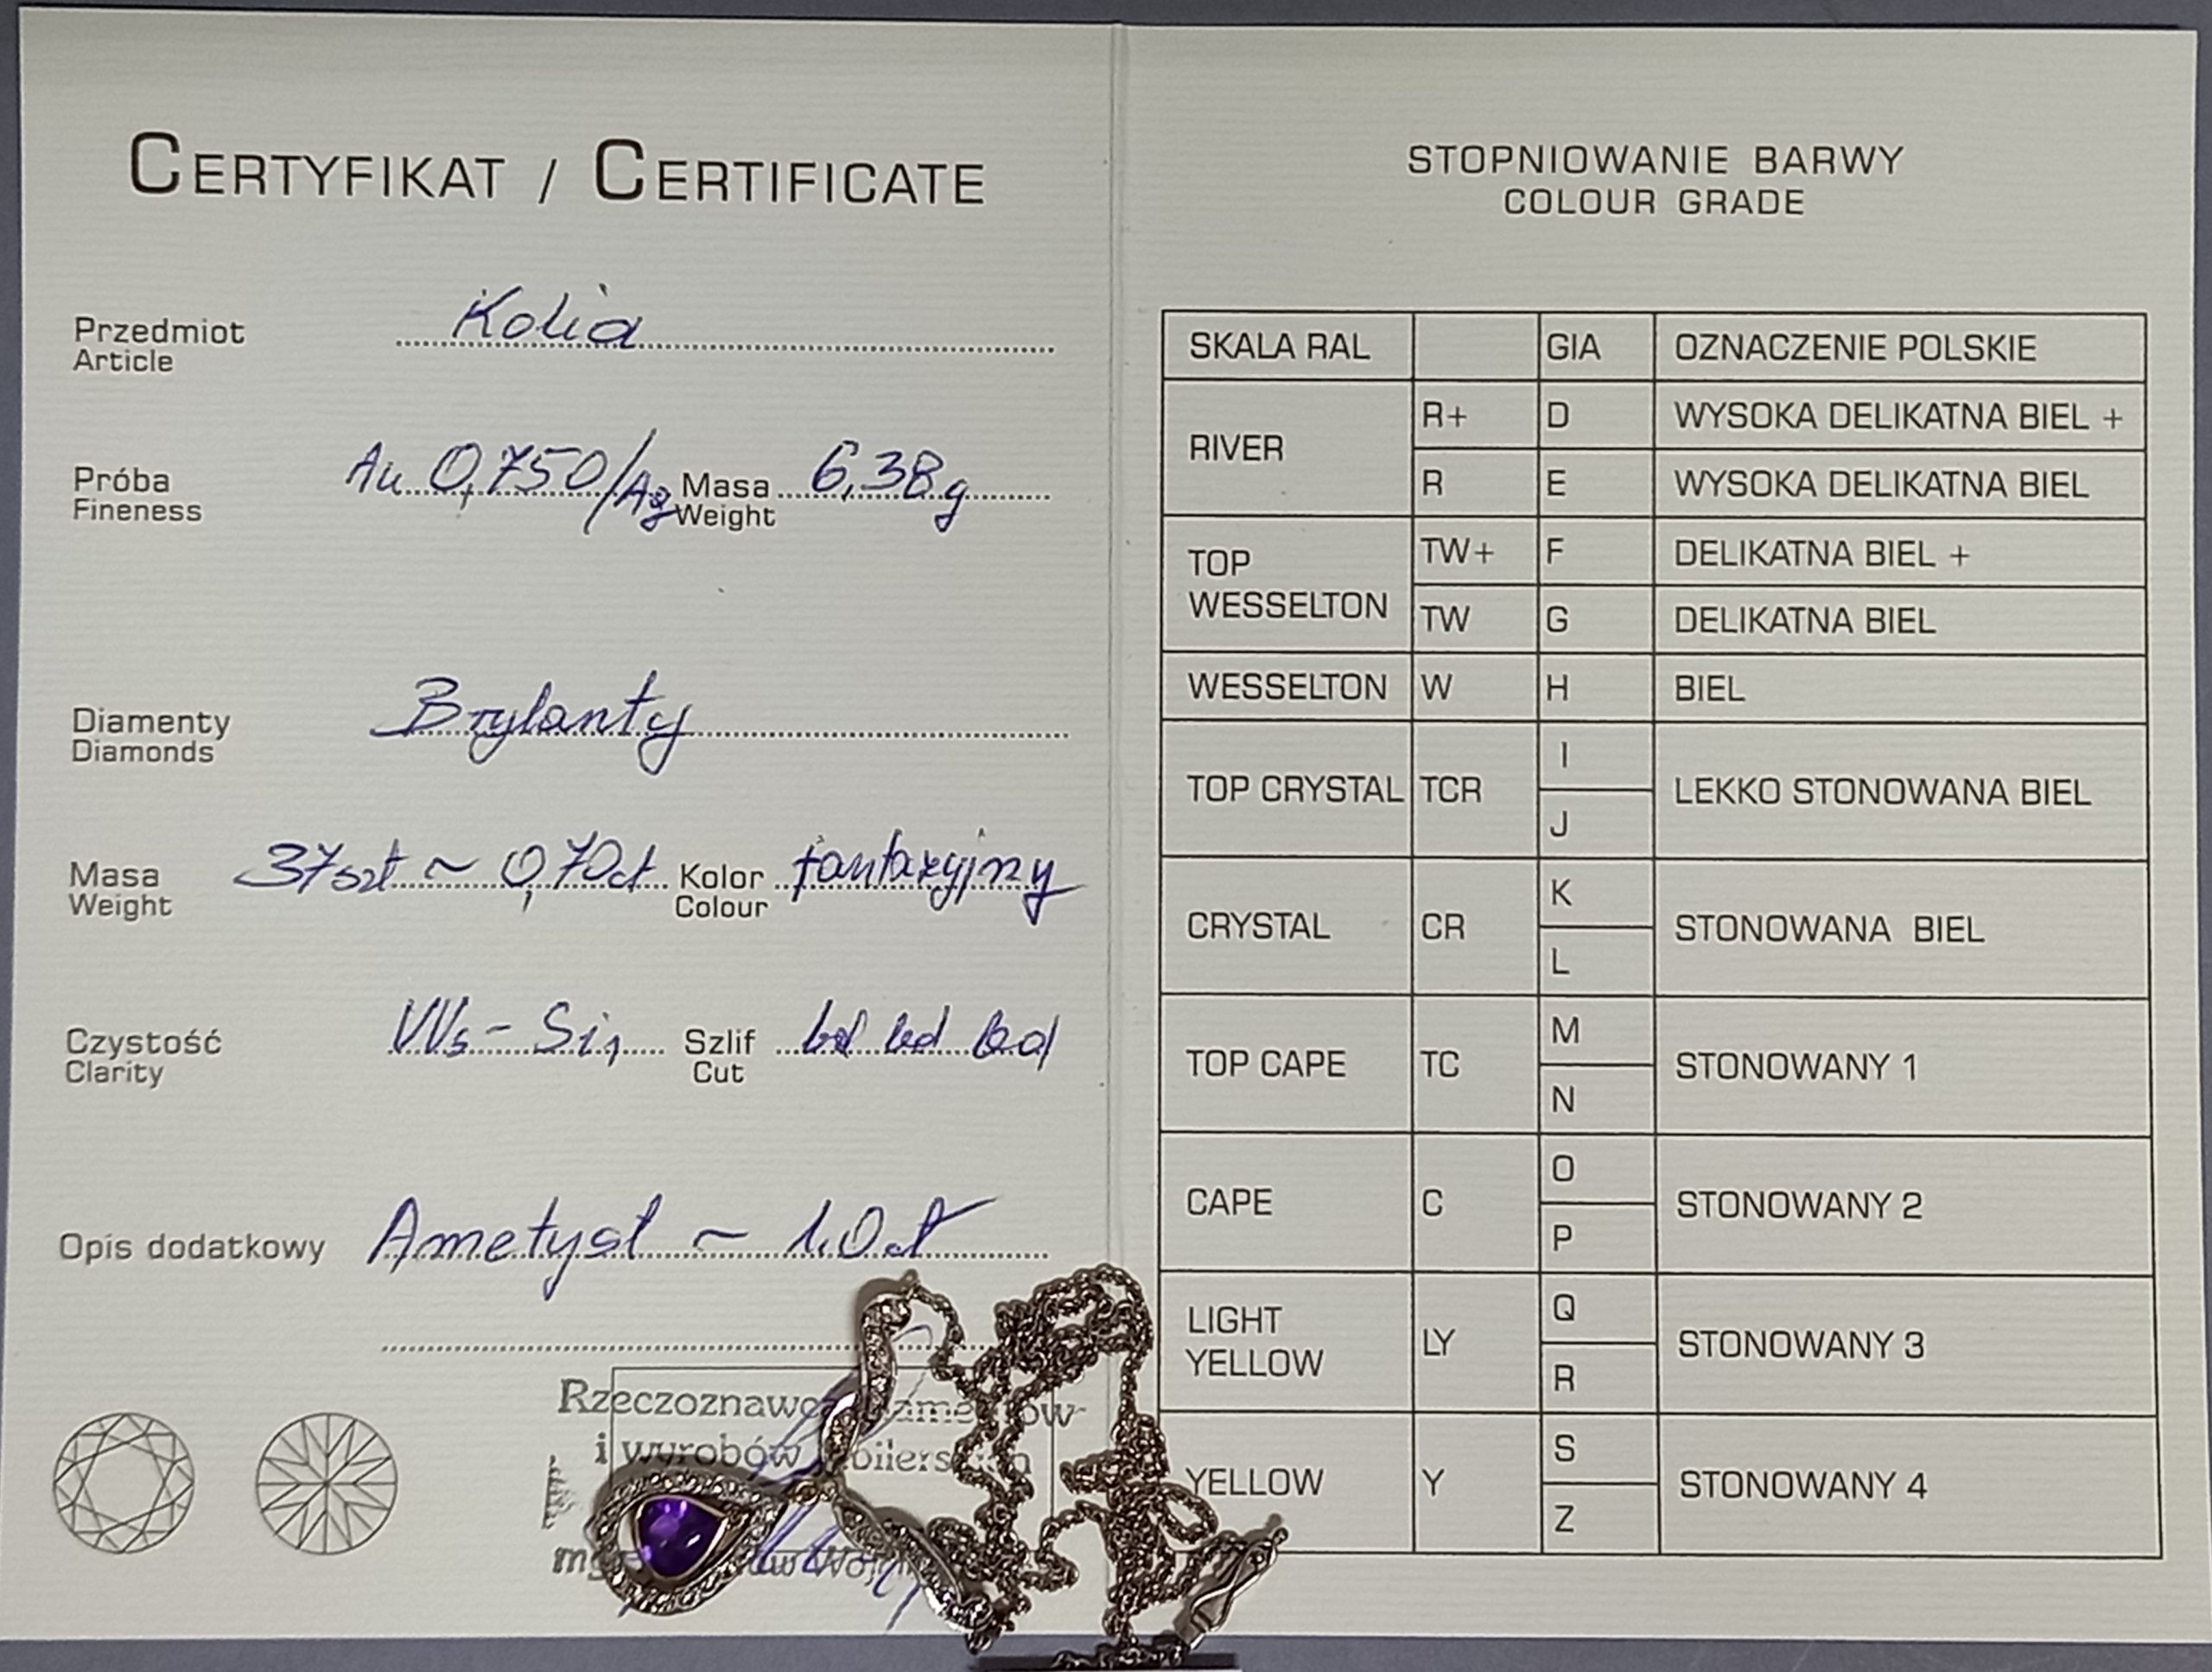 CERTYFIKAT / CERTIFICATE
Przedmiot Kolia
Article
Próba Au 0,750/Ag Masa 6,38g
Fineness Weight
Diamenty Brylanty
Diamonds
Masa 37szt ~ 0,70ct Kolor fantazyjny
Weight Colour
Czystość VVs - Si1 Szlif
Clarity Cut
Opis dodatkowy Ametyst ~ 1.0ct
i wyrobów
STOPNIOWANIE BARWY
COLOUR GRADE
SKALA RAL GIA OZNACZENIE POLSKIE
RIVER R+ D WYSOKA DELIKATNA BIEL +
R E WYSOKA DELIKATNA BIEL
TOP WESSELTON TW+ F DELIKATNA BIEL +
TW G DELIKATNA BIEL
WESSELTON W H BIEL
TOP CRYSTAL TCR I LEKKO STONOWANA BIEL
J
CRYSTAL CR K STONOWANA BIEL
L
TOP CAPE TC M STONOWANY 1
N
CAPE C O STONOWANY 2
P
LIGHT YELLOW LY Q STONOWANY 3
R
YELLOW Y S STONOWANY 4
Z